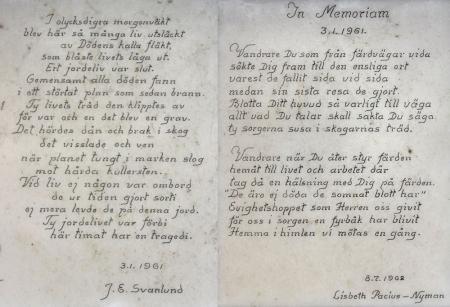 I olycksdigra morgonväkt
blev här så många liv utsläckt
av Dödens kalla fläkt,
som blåste livets låga ut.
Ett jordeliv var slut.
Gemensamt alla döden fann
i ett störtat plan som sedan brann.
Ty livets tråd den klipptes av
för var och en det blev en grav.
Det hördes dån och brak i skog
det visslade och ven
när planet tungt i marken slog
mot hårda kullersten.
Vid liv ej någon var ombord
de ur tiden gjort sorti
ej mera levde de på denna jord.
Ty jordelivet var förbi
här timat har en tragedi.
3.1.1961
J. E. Svanlund
In Memoriam
3.1.1961.
Vandrare Du som från färdvägar vida
sökte Dig fram till den ensliga ort
varest de fallit sida vid sida
medan sin sista resa de gjort.
Blotta Ditt huvud så varligt till väga
allt vad Du talar skall sakta Du säga
ty sorgerna susa i skogarnas träd.
Vandrare när Du åter styr färden
hemåt till livet och arbetet där
tag då en hälsning med Dig på färden.
"De äro ej döda de somnat blott här"
Evighetshoppet som Herren oss givit
för oss i sorgen en fyrbåk har blivit
Hemma i himlen vi mötas en gång.
8.7.1962
Lisbeth Pacius-Nyman